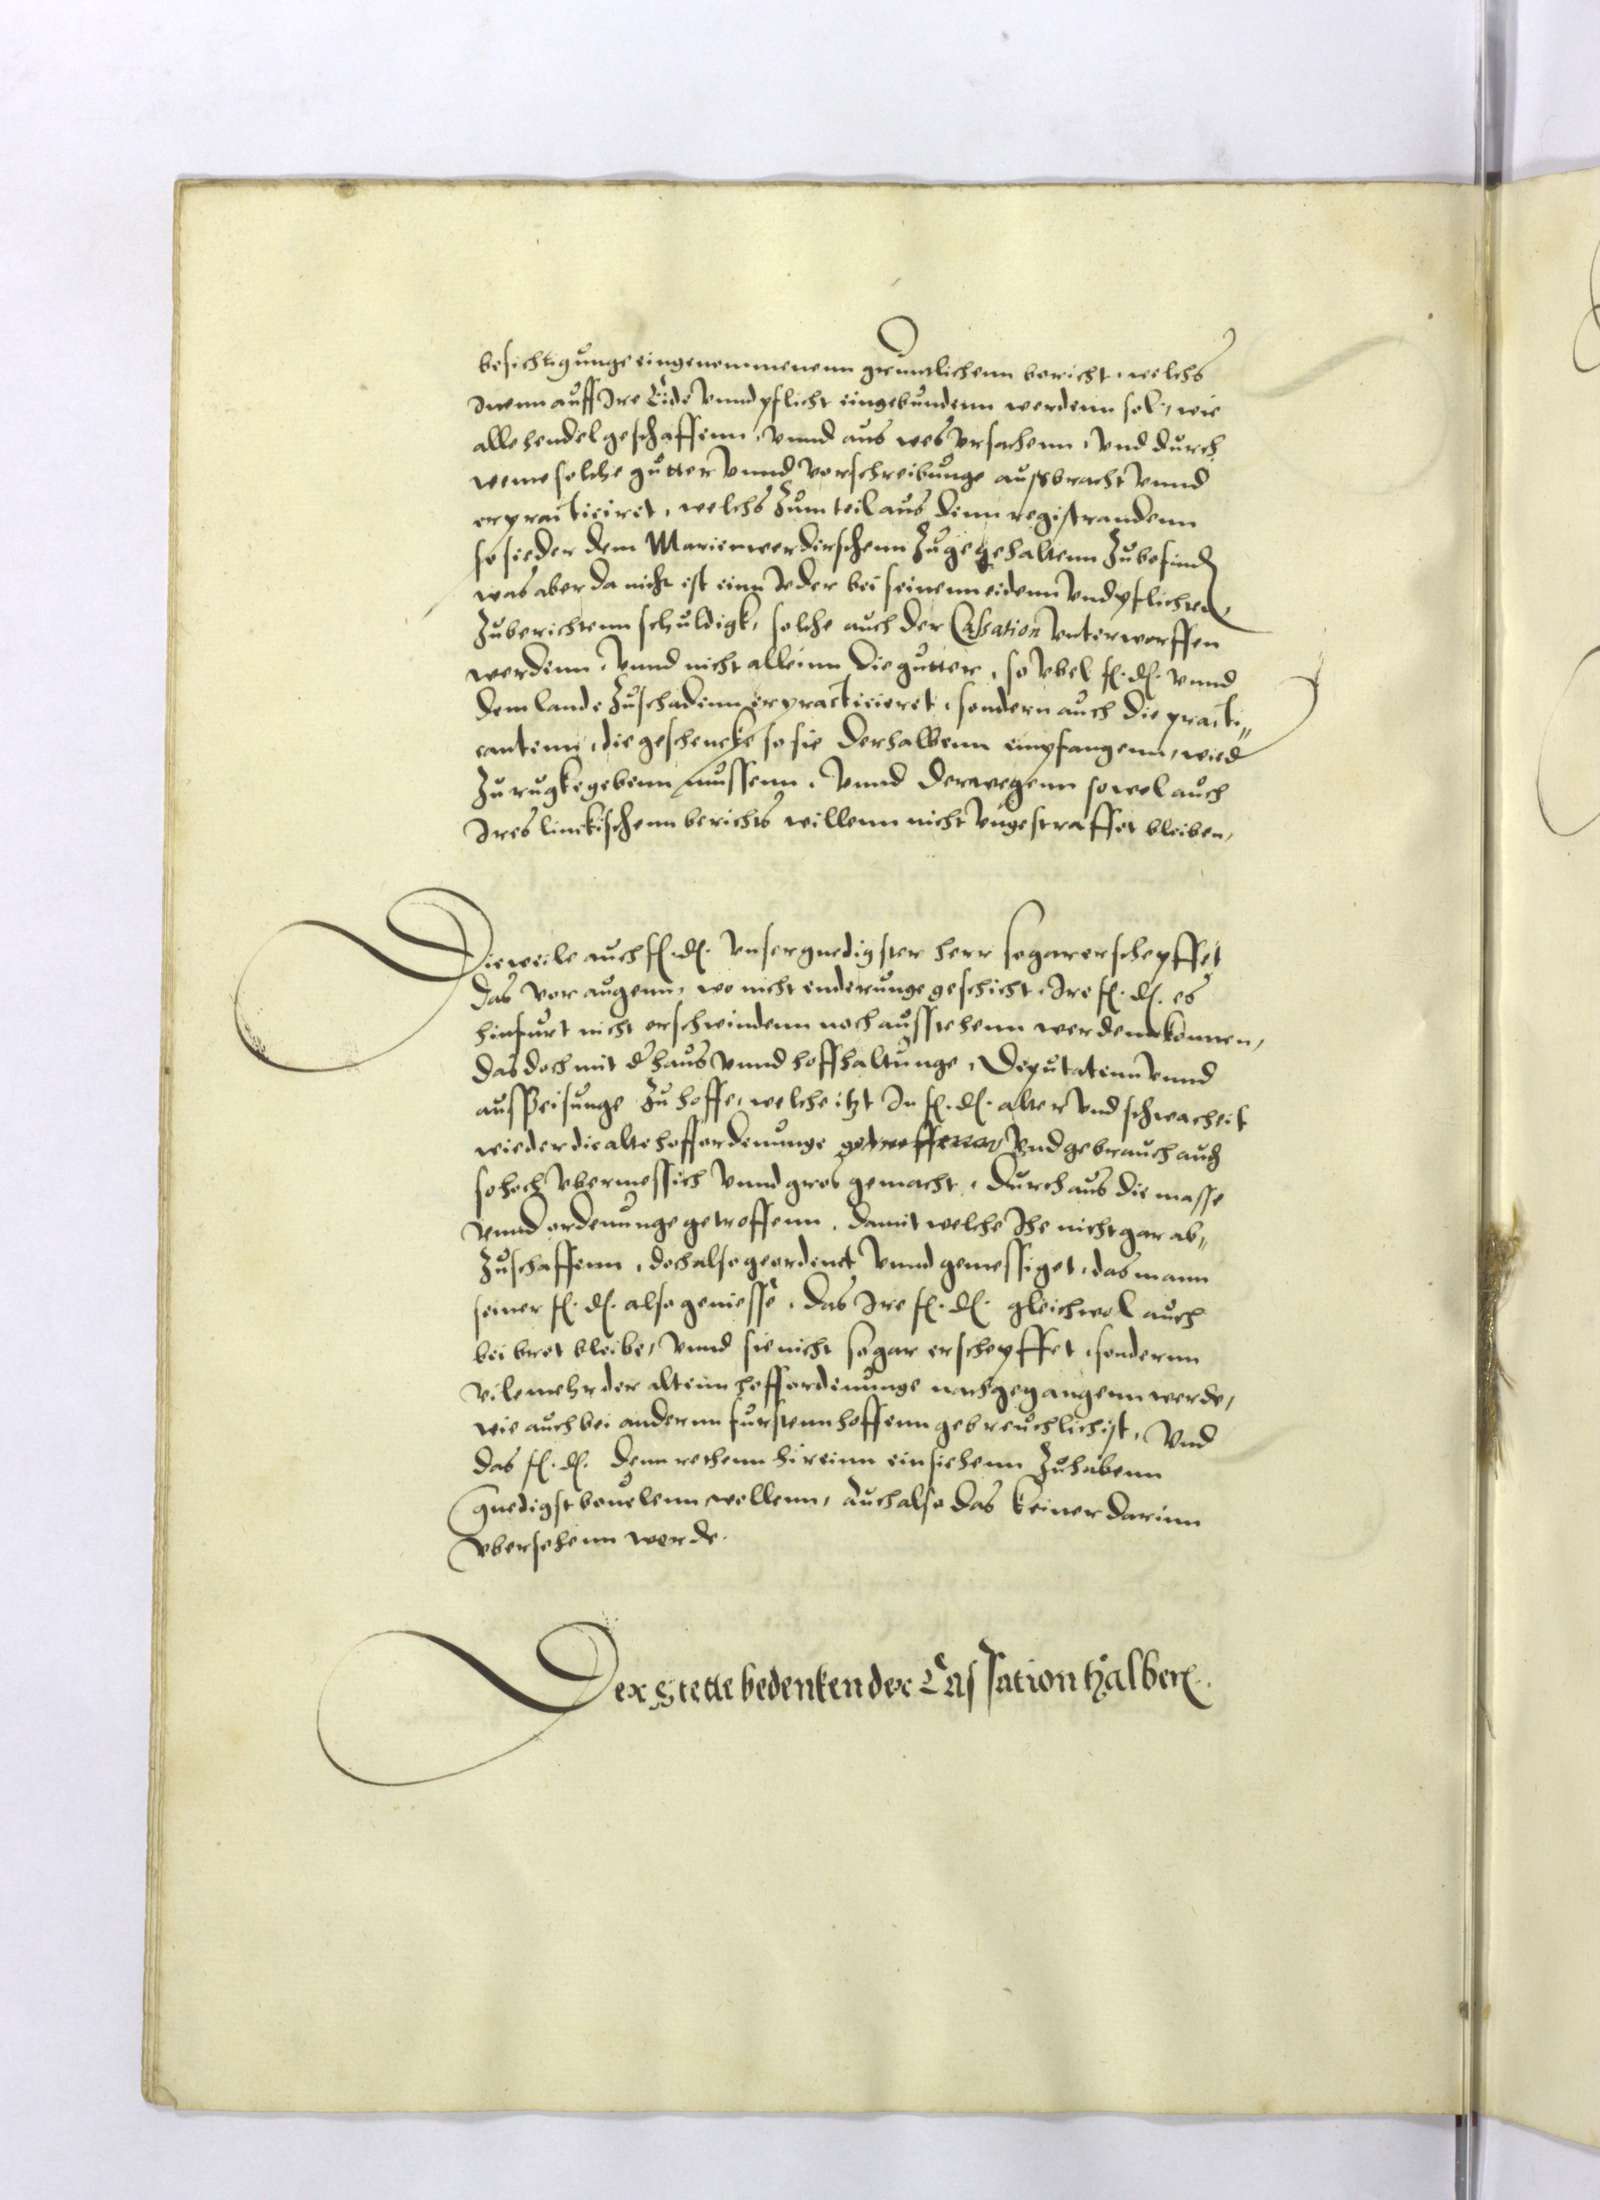 besichtigunge eingenommenenn gruntlichenn bericht, welchs
Inenn auff Ire Eide vnnd pflicht eingebundenn werdenn sol, wie
alle hendel geschaffenn, vnnd aus wes vrsachenn, vnd durch
weme solche gutter vnnd vorschreibunge ausbracht vnnd
erpracticiret, welchs Zum teil aus denn registrandenn
so sieder dem Marienwerdirschenn Zuge gehaltenn Zubefind
was aber da nicht ist einn Ider bei seinenn eidenn vnd pflichten,
Zuberichtenn schuldigk, solche auch der Cassation vnterworffen
werdenn, vnnd nicht alleinn die gutter, so vbel f. d. vnnd
dem lande Zuschadenn erpracticieret, sondern auch die practi⸗
cantenn, die geschencke so sie derhalbenn empfangenn, wied
Zurugke gebenn mussenn, vnnd derwegenn sowol auch
Ires linckischenn berichts willenn nicht vngestraffet bleiben,
Dieweile auch f. d. vnser gnedigster herr sogar erschepffet
das vor augenn, wo nicht enderunge geschicht, Ire f. d. es
hinfurt nicht erschwindenn noch ausstehenn werdenn konnen,
das doch mit d haus vnnd hoffhaltunge, Deputatenn vnnd
ausspeisunge Zu hoffe, welche itzt In f. d. alter vnd schwacheit
wieder die alte hoffordenunge getroffenen vnd gebrauch auch
so hoch vbermessich vnnd gros gemacht, durch aus die masse
vnnd ordenunge getroffenn, damit welche Ihe nicht gar ab⸗
Zuschaffenn, doch also geordenet vnnd gemessiget, das mann
seiner f. d. also geniesse, das Ire f. d. gleichwol auch
bei brot bleibe, vnnd sie nicht sogar erschepffet, sondernn
vilemehr der altenn hoffordenunge nachgegangenn werde,
wie auch bei andernn furstenn hoffenn gebreuchlich ist, Vnd
das f. d. denn rethenn hireinn einsehenn Zuhabenn
gnedigst beuelenn wollenn, auch also das keiner darinn
vbersehenn werde.
Der Stette bedenken der Cassation halben.